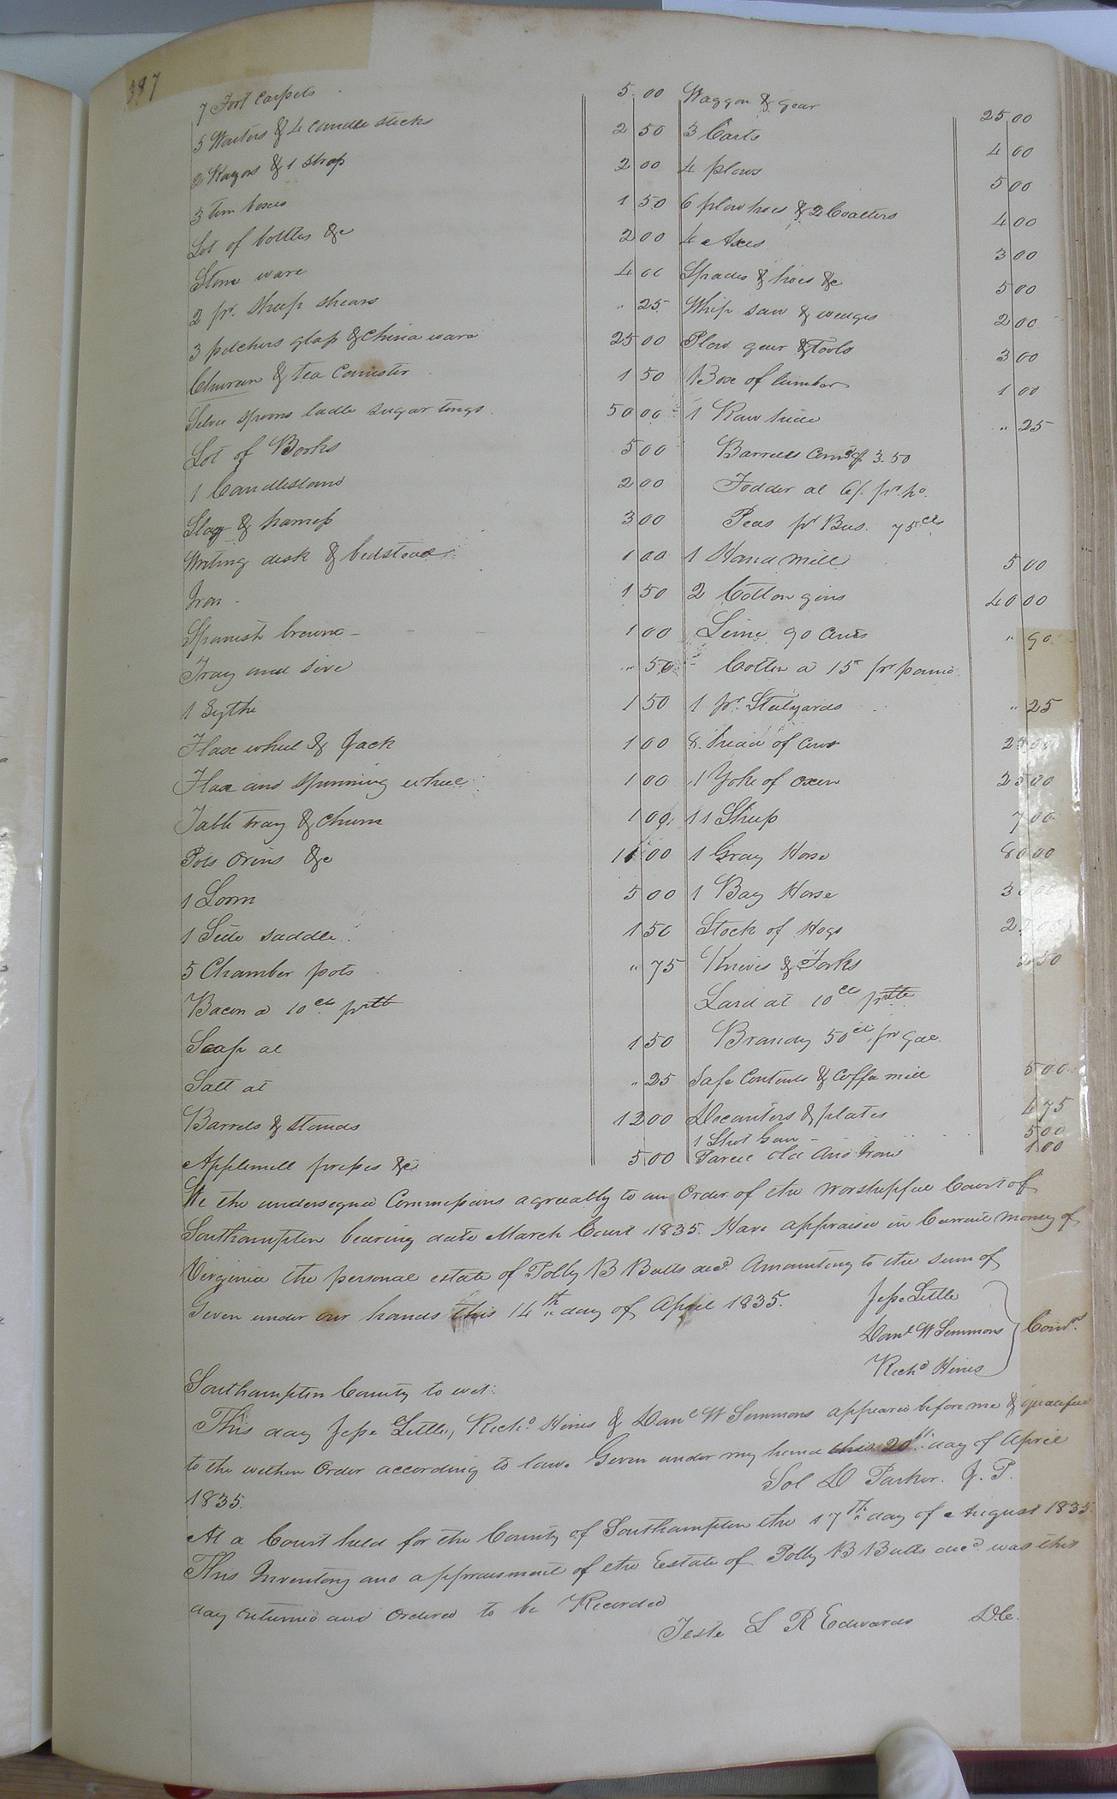 397
7 Foot Carpets 5 00
5 Waiters & 4 candle sticks 2 50
2 Razors & 1 strop 2 00
3 tin boxes 1 50
Lot of bottles &c 2 00
Stone ware 4 00
2 pr. sheep shears " 25
3 pitchers glass & china ware 25 00
& tea Canister 1 50
Silver spoons ladle sugar tongs 50 00
Lot of Books 5 00
1 Candlestand 2 00
& harness 3 00
Writing desk & bedstead 1 00
Iron 1 50
Spanish brown 1 00
Tray and sive " 50
1 Sythe 1 50
Flax wheel & Jack 1 00
Flax and spinning wheel 1 00
Table tray & churn 1 00
Pots ovens &c 11 00
1 Loom 5 00
1 Side saddle 1 50
5 Chamber pots " 75
Bacon a 10 cts pr lb
Soap at 1 50
Salt at " 25
Barrels & stands 12 00
Applemill presses &c 5 00
Waggon & gear 25 00
3 Carts 4 00
4 plows 5 00
6 plow hoes & 2 Coalters 4 00
4 Axes 3 00
Spades & hoes &c 5 00
Whip saw & wedges 2 00
Plow gear & Tools 3 00
1 Box of lumber 1 00
1 Raw hide " 25
Barrells Corn 3.50
Fodder at 6/. pr
Peas pr Bus. 75 cts
1 Hand mill 5 00
2 Cotton gins 40 00
Lime 90 Cents " 90
Cotton a 15 pr pound
1 pr. Stilyards " 25
8 head of Cows
1 Yoke of oxen 00
11 Sheep 7 00
1 Gray Horse 80 00
1 Bay Horse
Stock of Hogs
Knives & Forks 50
Lard at 10 cts pr lb
Brandy 50 cts pr Gal.
Safe Contents & Coffe mill 5 00
Decanters & plates 4 75
1 Shot Gun 5 00
Parcel old And Irons 1 00
We the undersigned Commissions agreeably to an Order of the worshipful Court of
Southampton bearing date March Court 1835. Have appraised in Current money of
Virginia the personal estate of Polly B Butts decd. Amounting to the sum of
Given under our hands this 14th day of April 1835.
Jesse Little
Danl W Simmons Comrs.
Richd Hines
Southampton County to wit:
This day Jesse Little, Richd Hines & Danl W Simmons appeared before me & qualified
to the within Order according to law. Given under my hand this 20th day of April
1835. Sol D Parker. J. P.
At a Court held for the County of Southampton the 17th day of August 1835
This Inventory and appraisment of the Estate of Polly B Butts decd was this
day returned and Ordered to be Recorded
Teste L R Edwards D.C.